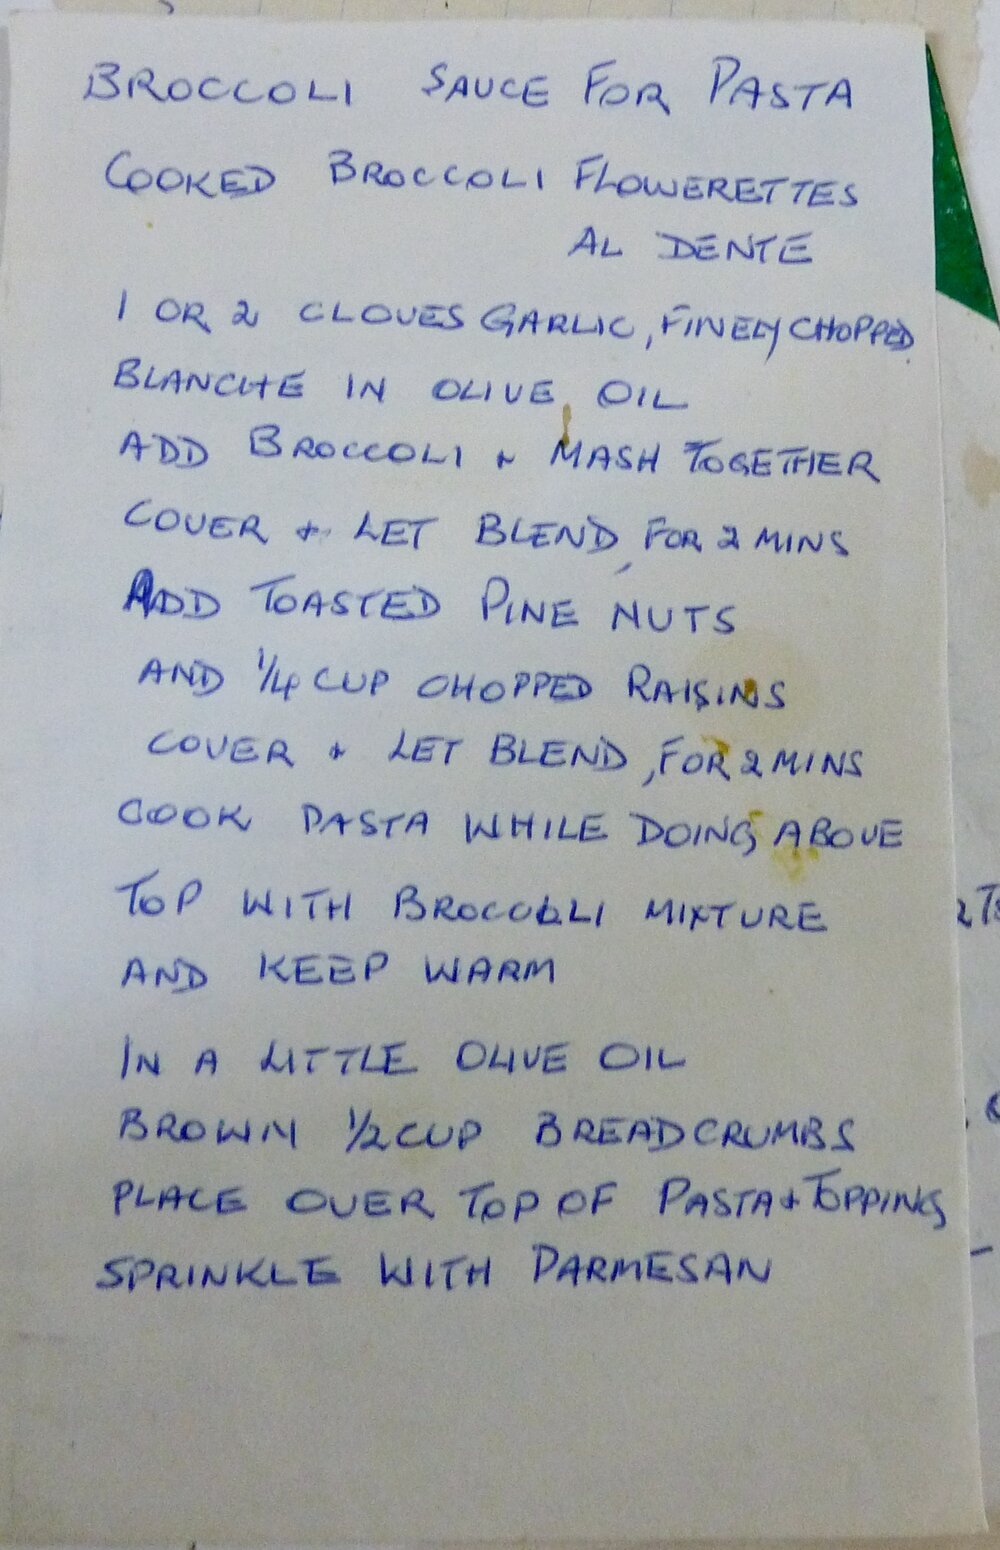 BROCCOLI SAUCE FOR PASTA
COOKED BROCCOLI FLOWERETTES
AL DENTE
1 OR 2 CLOVES GARLIC, FINELY CHOPPED
BLANCHE IN OLIVE OIL
ADD BROCCOLI & MASH TOGETHER
COVER & LET BLEND, FOR 2 MINS
ADD TOASTED PINE NUTS
AND 1/4 CUP CHOPPED RAISINS
COVER & LET BLEND, FOR 2 MINS
COOK PASTA WHILE DOING ABOVE
TOP WITH BROCCOLI MIXTURE
AND KEEP WARM
IN A LITTLE OLIVE OIL
BROWN 1/2 CUP BREADCRUMBS
PLACE OVER TOP OF PASTA & TOPPING
SPRINKLE WITH PARMESAN